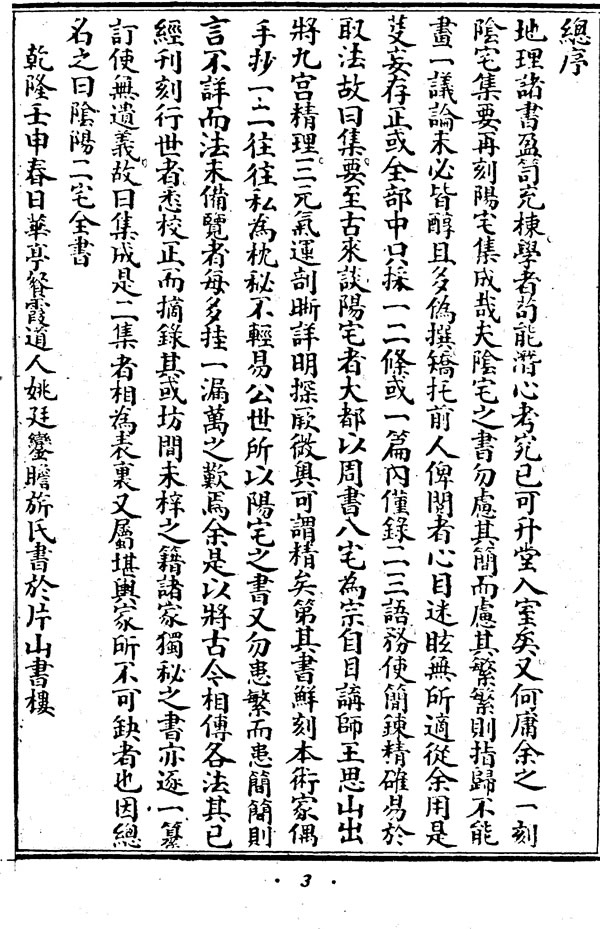 總序
地理諸書盈笥充棟學者苟能潛心考究已可升堂入室矣又何庸余之一刻
陰宅集要再刻陽宅集成哉夫陰宅之書勿慮其簡而慮其繁繁則指歸不能
畫一議論未必皆醇且多偽撰矯托前人俾閱者心目迷眩無所適從余用是
芟妄存正或全部中只採一二條或一篇內僅錄二三語務使簡鍊精確易於
取法故曰集要至古來談陽宅者大都以周書八宅為宗自目講師王思山出
將九宮精理三元氣運剖晰詳明探厥微輿可謂精矣第其書鮮刻本術家偶
手抄一二往往私為枕秘不輕易公世所以陽宅之書又勿患繁而患簡簡則
言不詳而法未備覽者每多挂一漏萬之歎焉余是以將古今相傳各法其已
經刊刻行世者悉校正而摘錄其或坊間未梓之籍諸家獨秘之書亦逐一纂
訂使無遺義故曰集成是二集者相為表裏又屬堪輿家所不可缺者也因總
名之曰陰陽二宅全書
乾隆壬申春日華亭餐霞道人姚廷鑾瞻旂氏書於片山書樓
· 3 ·